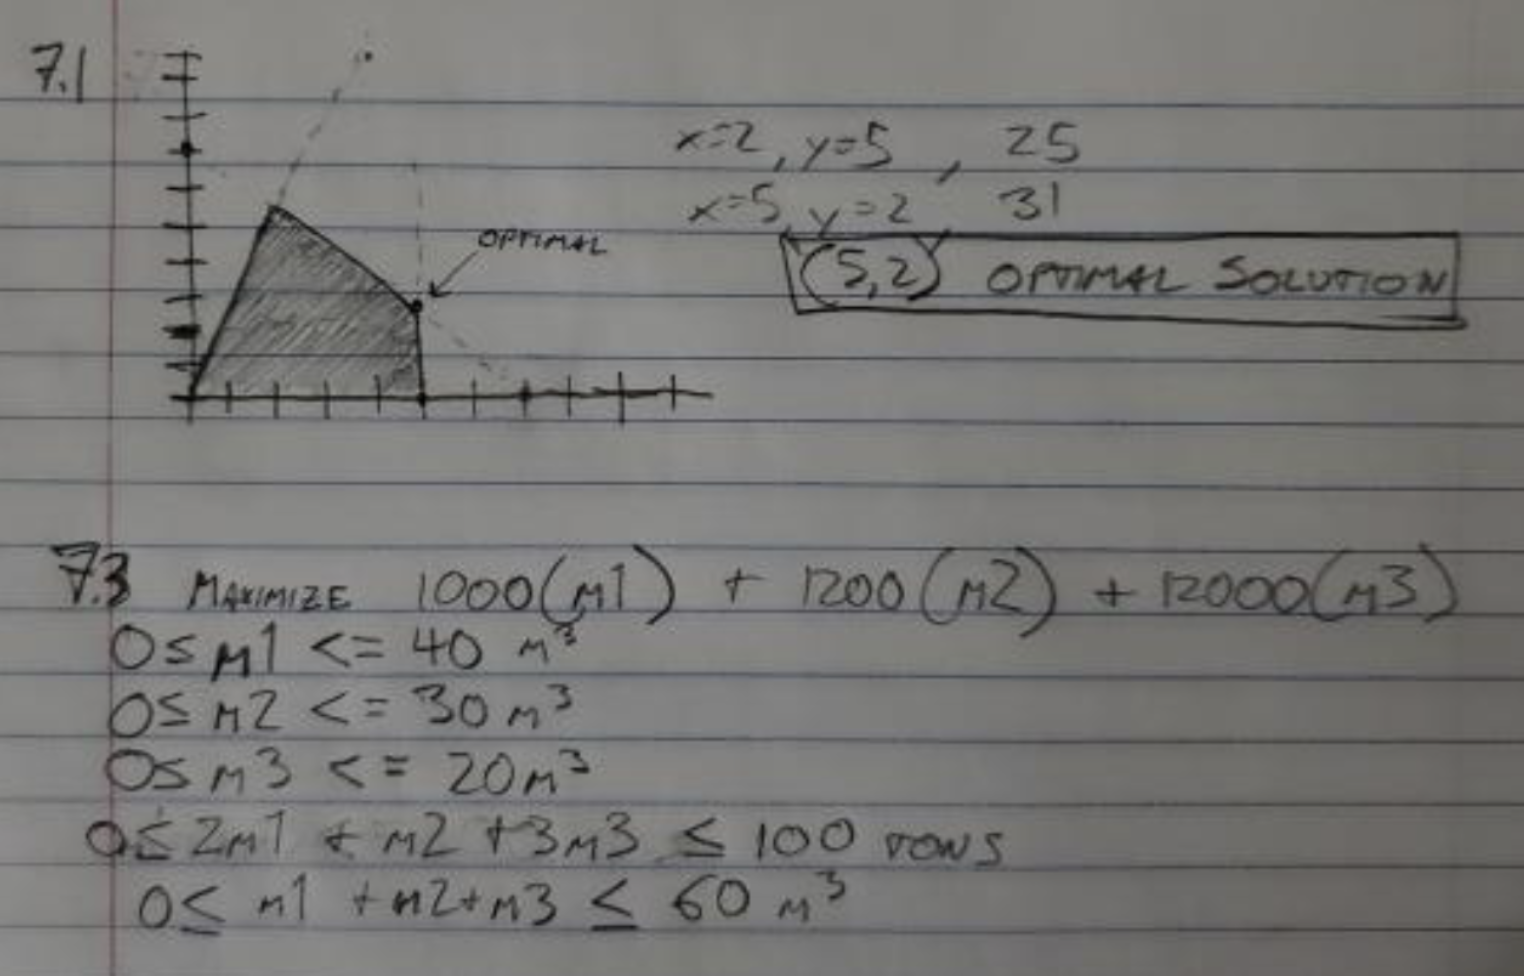 7.1
x=2, y=5, 25
x=5, y=2 31
OPTIMAL
(5,2) OPTIMAL SOLUTION
7.3 MAXIMIZE 1000(M1) + 1200(M2) + 12000(M3)
0≤ M1 <= 40 M³
0≤ M2 <= 30 M³
0≤ M3 <= 20M³
0≤ 2M1 + M2 +3M3 ≤ 100 TONS
0≤ M1 +M2+M3 ≤ 60 M³